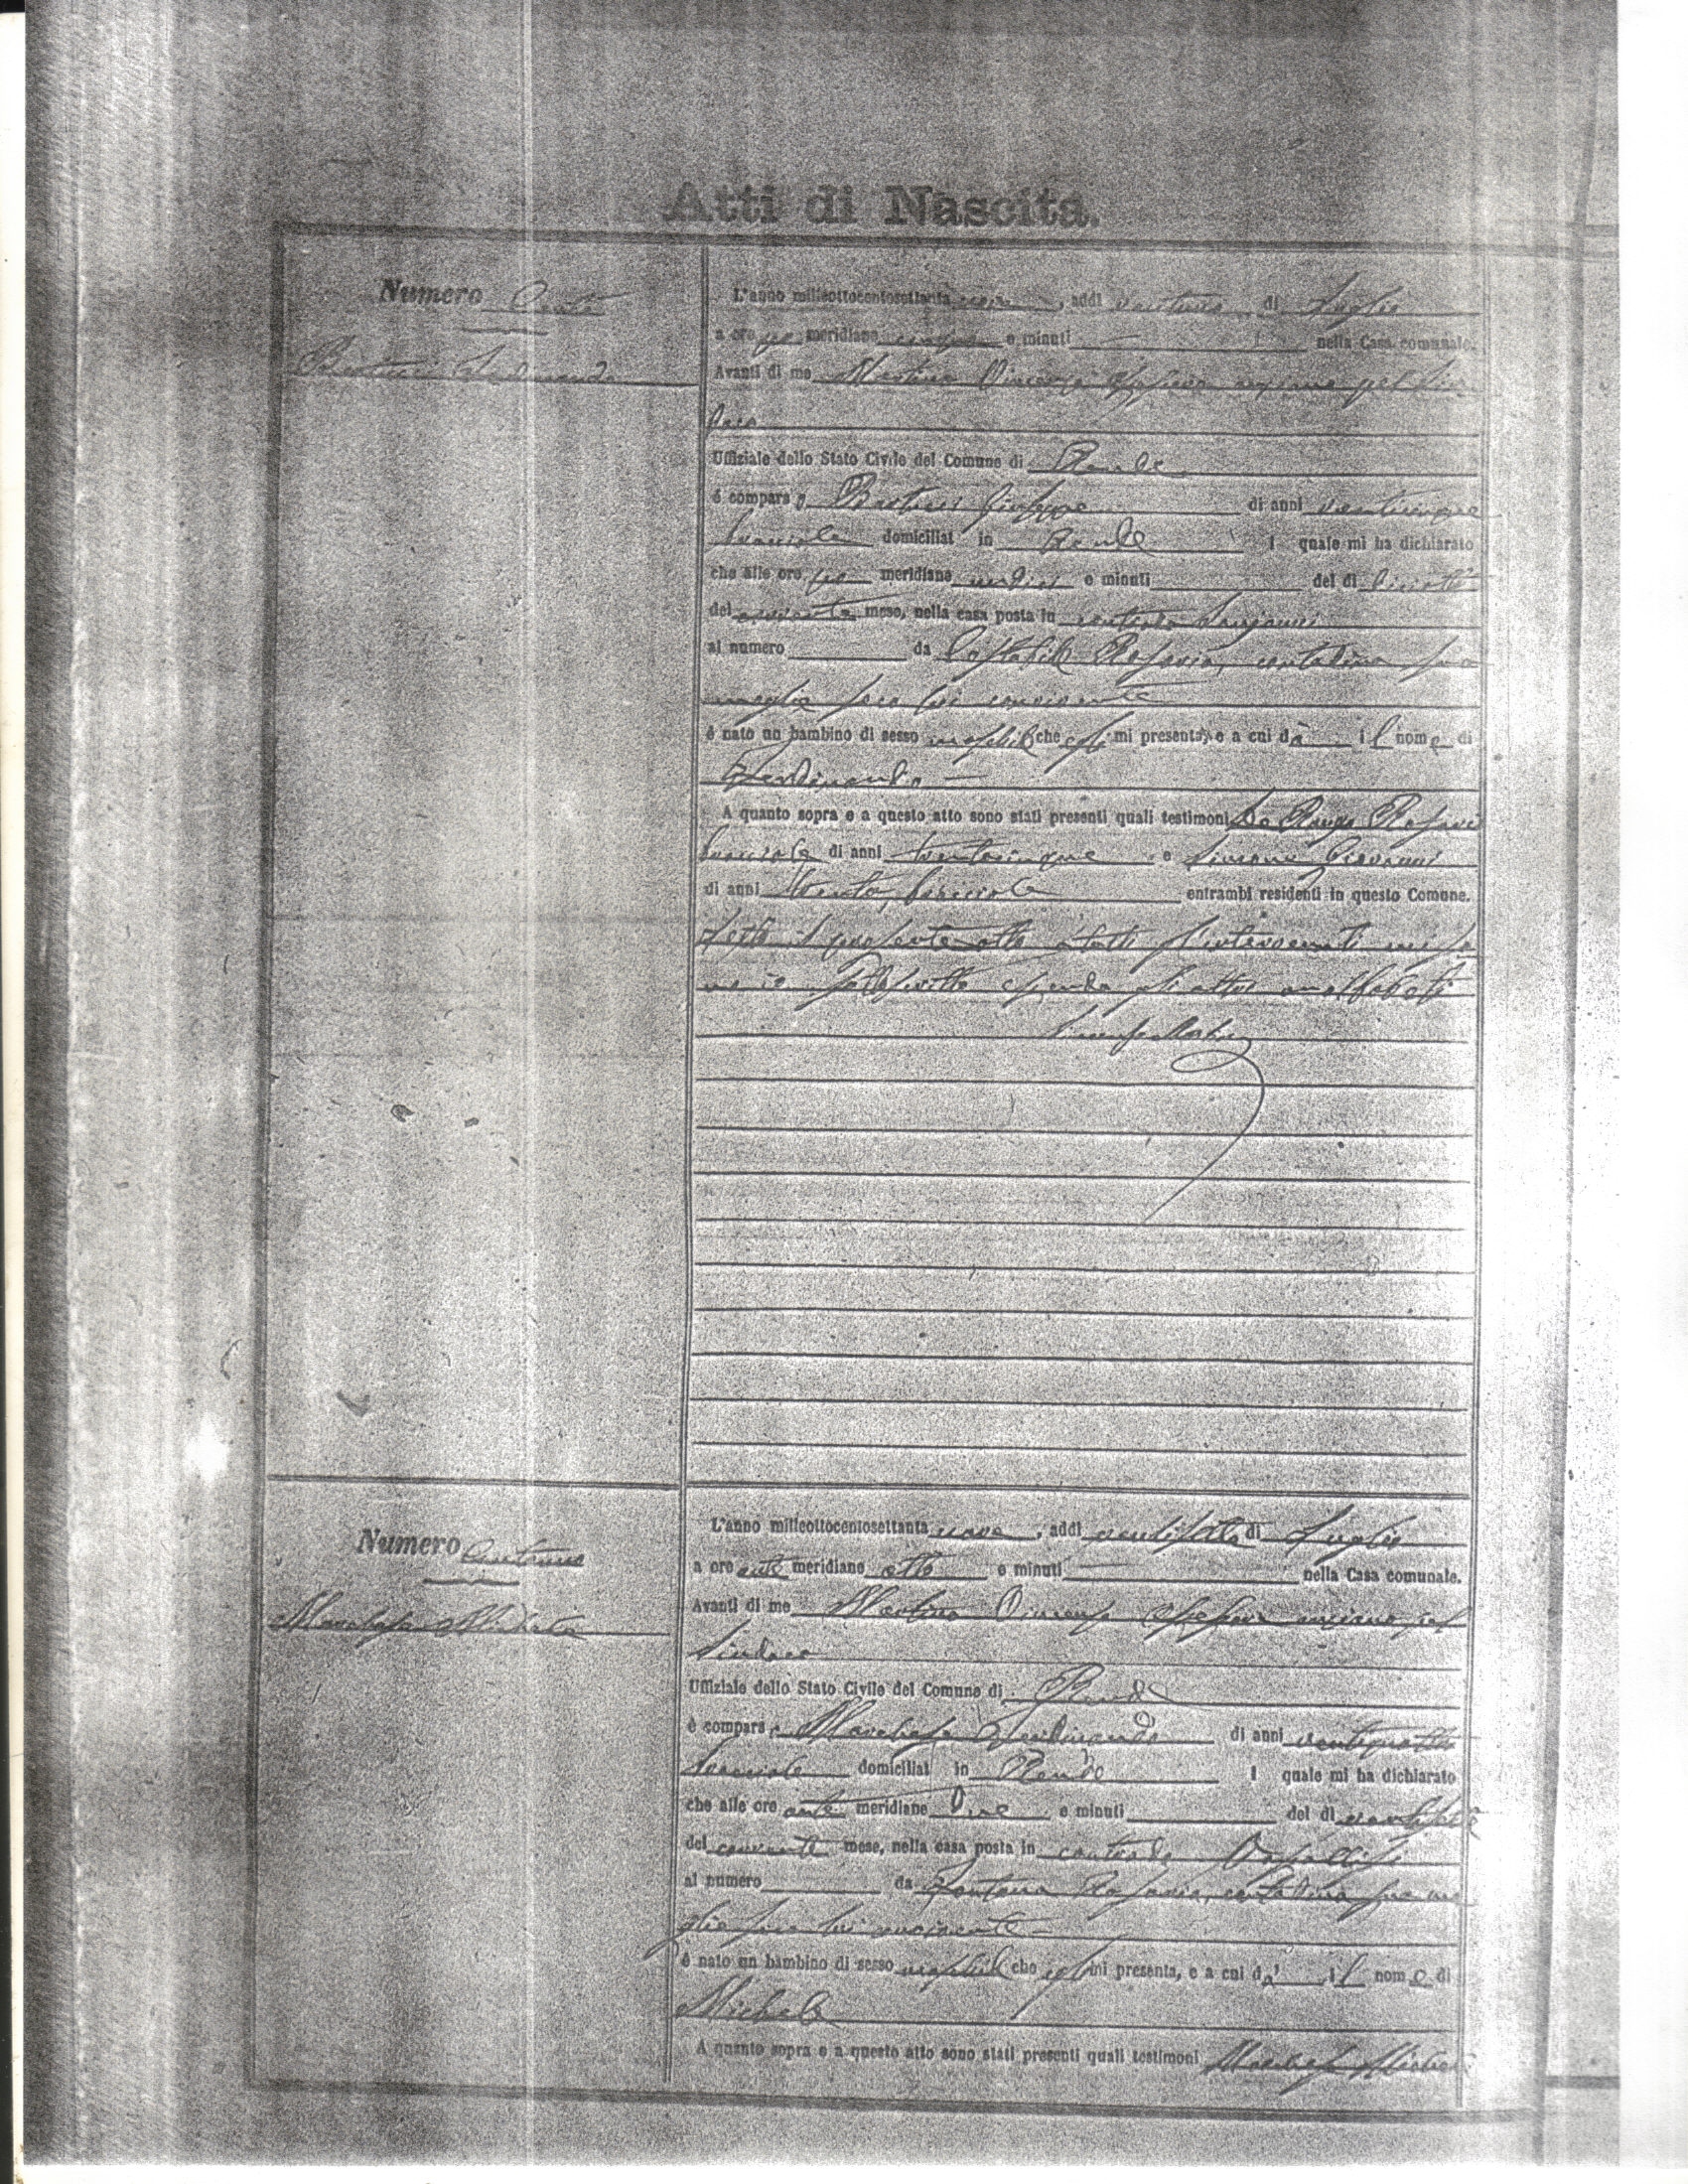 Atti di Nascita.
Numero Cento
Ferdinando
L'anno milleottocentosettanta nove, addì ventuno di Luglio
a ore meridiane e minuti nella Casa comunale.
Avanti di me Martino Vincenzo Assessore anziano pel Sin
daco
Uffiziale dello Stato Civile del Comune di Rende
è comparso Giuseppe di anni venticinque
bracciale domiciliat in Rende l quale mi ha dichiarato
che alle ore meridiane undici e minuti del dì diciotto
del corrente mese, nella casa posta in contrada
al numero da Rosaria, contadina sua
moglie seco lui convivente
è nato un bambino di sesso maschile che egli mi presenta, e a cui dà il nome di
Ferdinando
A quanto sopra e a questo atto sono stati presenti quali testimoni De Rango
bracciale di anni trentacinque e Simone Giovanni
di anni trenta, bracciale entrambi residenti in questo Comune.
Letto il presente atto a tutti gl'intervenuti
io sottoscritto essendo gli altri analfabeti
Vincenzo Martino
Numero Centouno
Marchese Michele
L'anno milleottocentosettanta nove, addì ventisette di Luglio
a ore ante meridiane otto e minuti nella Casa comunale.
Avanti di me Martino Vincenzo Assessore anziano pel
Sindaco
Uffiziale dello Stato Civile del Comune di Rende
è comparso Marchese Ferdinando di anni ventiquattro
bracciale domiciliat in Rende l quale mi ha dichiarato
che alle ore ante meridiane due e minuti del dì ventisette
del corrente mese, nella casa posta in contrada
al numero da Fontana Rosaria, contadina sua mo
glie seco lui convivente
è nato un bambino di sesso maschile che egli mi presenta, e a cui dà il nome di
Michele
A quanto sopra e a questo atto sono stati presenti quali testimoni Marchese Michele